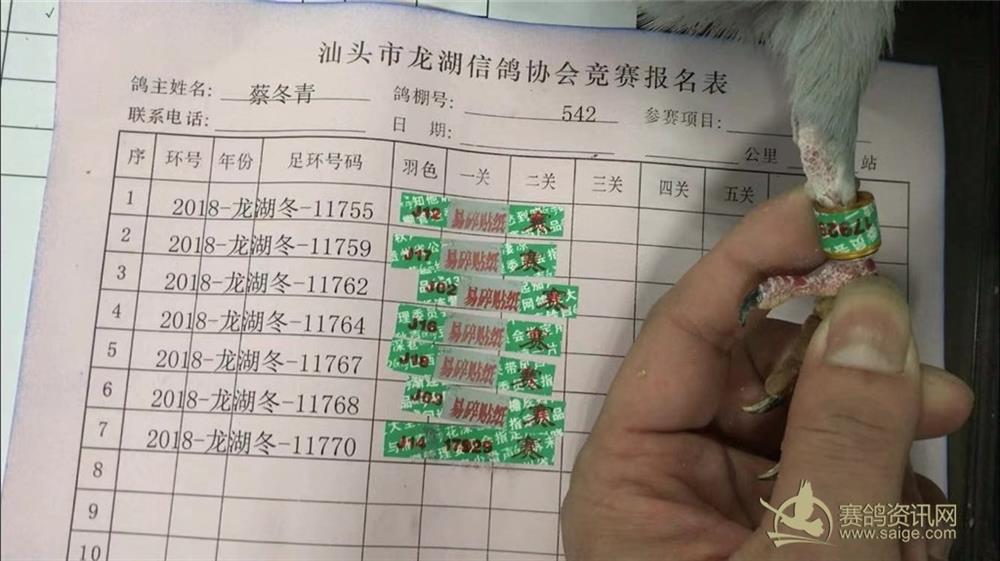 汕头市龙湖信鸽协会竞赛报名表
鸽主姓名: 蔡冬青 鸽棚号: 542 参赛项目:
联系电话: 日 期: 公里 站
序 环号 年份 足环号码 羽色 一关 二关 三关 四关 五关
1 2018-龙湖冬-11755 J12 易碎贴纸 赛
2 2018-龙湖冬-11759 J17 易碎贴纸 赛
3 2018-龙湖冬-11762 J02 易碎贴纸 赛
4 2018-龙湖冬-11764 J16 易碎贴纸 赛
5 2018-龙湖冬-11767 J18 易碎贴纸 赛
6 2018-龙湖冬-11768 J03 易碎贴纸 赛
7 2018-龙湖冬-11770 J14 17929 赛
8
9
10
17929
赛鸽资讯网
www.saige.com